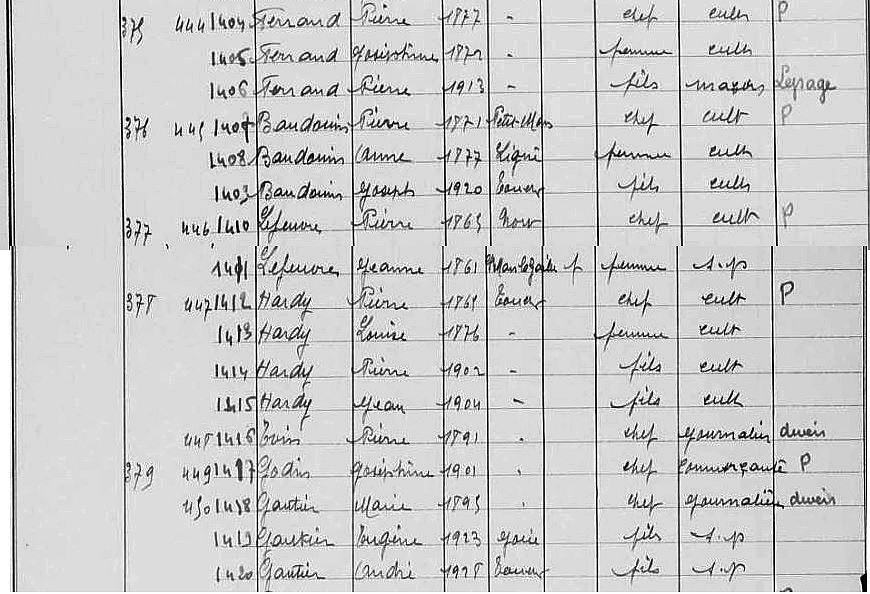 375 444 1404 Ferrand Pierre 1877 - chef cult P
1405 Ferrand Joséphine 1872 - femme cult
1406 Ferrand Pierre 1913 - fils maçon Lesage
376 445 1407 Baudouin Pierre 1871 Petit-Mars chef cult P
1408 Baudouin Anne 1877 Ligné femme cult
1409 Baudouin Joseph 1920 fils cult
377 446 1410 Lefeuvre Pierre 1865 Nort chef cult P
1411 Lefeuvre Jeanne 1861 femme s.p
378 447 1412 Hardy Pierre 1865 chef cult P
1413 Hardy Louise 1876 - femme cult
1414 Hardy Pierre 1902 - fils cult
1415 Hardy Jean 1904 - fils cult
448 1416 Pierre 1891 - chef journalier divers
379 449 1417 Godin Joséphine 1901 - chef commerçante P
450 1418 Gautier Marie 1895 - chef journalière divers
1419 Gautier Eugène 1923 fils s.p
1420 Gautier André 1928 fils s.p